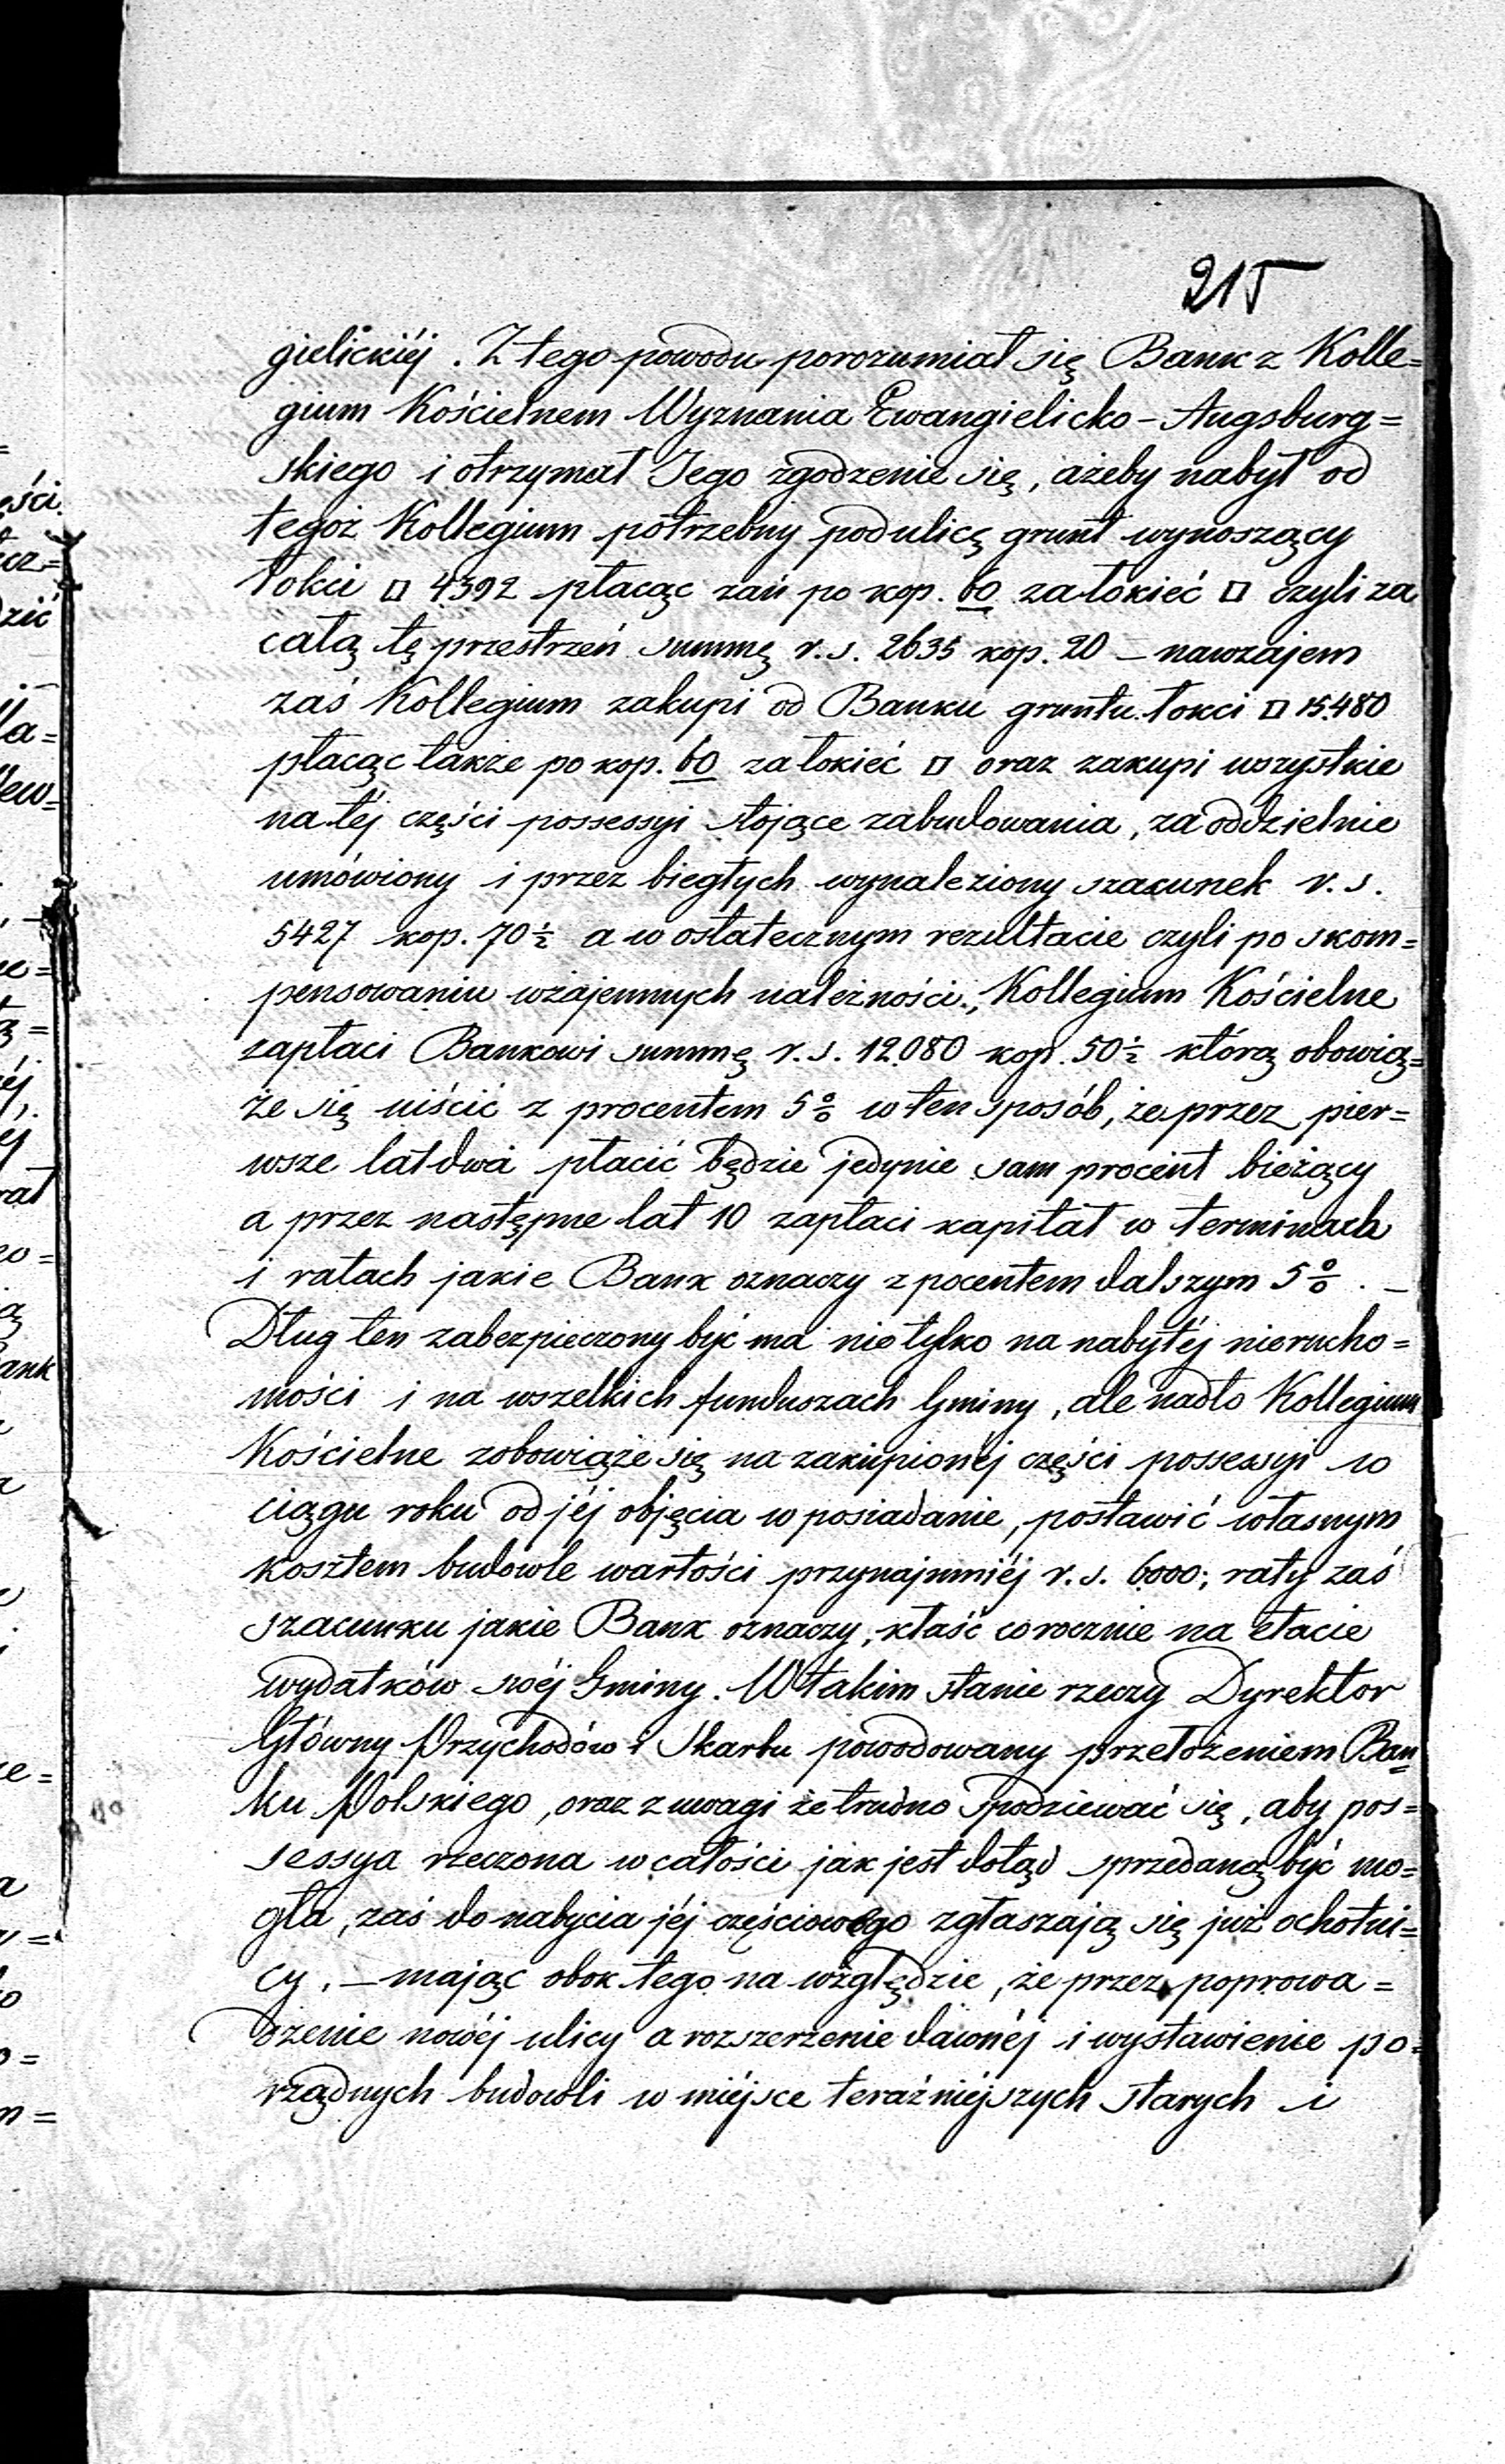 215
gielickiéj. Z tego powodu porozumiał się Bank z Kolle=
gium Kościelnem Wyznania Ewangielicko-Augsburg=
skiego i otrzymał Jego zgodzenie się, ażeby nabył od
tegoż Kollegium potrzebny pod ulicę grunt wynoszący
łokci □ 4392 płacąc zań po kop. 60 za łokieć □ czyli za
całą tę przestrzeń summę r.s. 2635 kop. 20 – nawzajem
zaś Kollegium zakupi od Banku gruntu łokci □ 15.480
płacąc także po kop. 60 za łokieć □ oraz zakupi wszystkie
na téj części possessyi stojące zabudowania, za oddzielnie
umówiony i przez biegłych wynaleziony szacunek r.s.
5427 kop. 70½ a w ostatecznym rezultacie czyli po skom=
pensowaniu wzajemnych należności, Kollegium Kościelne
zapłaci Bankowi summę r.s. 12.080 kop. 50½ którą obowią=
że się uiścić z procentem 5% w ten sposób, że przez pier=
wsze lat dwa płacić będzie jedynie sam procent bieżący
a przez następne lat 10 zapłaci kapitał w terminach
i ratach jakie Bank oznaczy z pocentem dalszym 5%. –
Dług ten zabezpieczony być ma nie tylko na nabytéj nierucho=
mości i na wszelkich funduszach Gminy, ale nadto Kollegium
Kościelne zobowiąże się na zakupionéj części possessyi w
ciągu roku od jéj objęcia w posiadanie, postawić własnym
kosztem budowle wartości przynajmniéj r.s. 6000; raty zaś
szacunku jakie Bank oznaczy, kłaść corocznie na etacie
wydatków swéj Gminy. W takim stanie rzeczy Dyrektor
Główny Przychodów i Skarbu powodowany przełożeniem Ban=
ku Polskiego, oraz z uwagi że trudno spodziewać się, aby pos=
sessya rzeczona w całości jak jest dotąd sprzedaną być mo=
gła, zaś do nabycia jéj częściowego zgłaszają się już ochotni=
cy, – mając obok tego na względzie, że przez poprowa=
dzenie nowéj ulicy a rozszerzenie dawnéj i wystawienie po=
rządnych budowli w miéjsce teraźniéjszych starych i